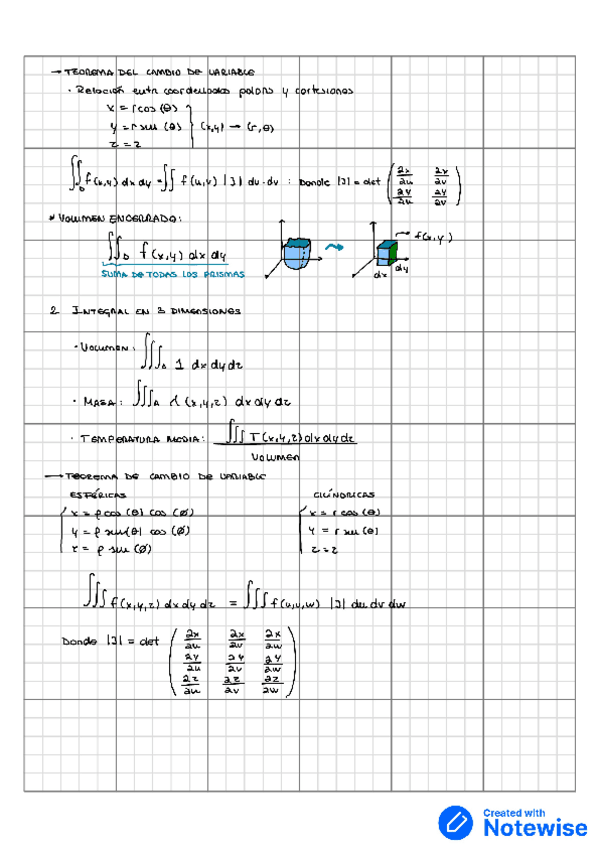 → TEOREMA DEL CAMBIO DE VARIABLE
· Relación entre coordenadas polares y cartesianas
x = r cos (θ)
y = r sen (θ) } (x,y) → (r,θ)
z = z
∬_D f(x,y) dx dy = ∬ f(u,v) |J| du·dv : Donde |J| = det ( ∂x/∂u ∂x/∂v
∂y/∂u ∂y/∂v )
* VOLUMEN ENCERRADO:
∬_D f(x,y) dx dy
SUMA DE TODAS LOS PRISMAS
→ f(x,y)
dx dy
2 INTEGRAL EN 3 DIMENSIONES
· VOLUMEN: ∭_A 1 dx dy dz
· MASA: ∭_A λ(x,y,z) dx dy dz
· TEMPERATURA MEDIA: ∭ T(x,y,z) dx dy dz
VOLUMEN
→ TEOREMA DE CAMBIO DE VARIABLE
ESFÉRICAS
{ x = ρ cos (θ) cos (Ø)
y = ρ sen(θ) cos (Ø)
z = ρ sen (Ø)
CILÍNDRICAS
{ x = r cos (θ)
y = r sen (θ)
z = z
∭ f(x,y,z) dx dy dz = ∭ f(u,v,w) |J| du dv dw
Donde |J| = det ( ∂x/∂u ∂x/∂v ∂x/∂w
∂y/∂u ∂y/∂v ∂y/∂w
∂z/∂u ∂z/∂v ∂z/∂w )
Created with
Notewise